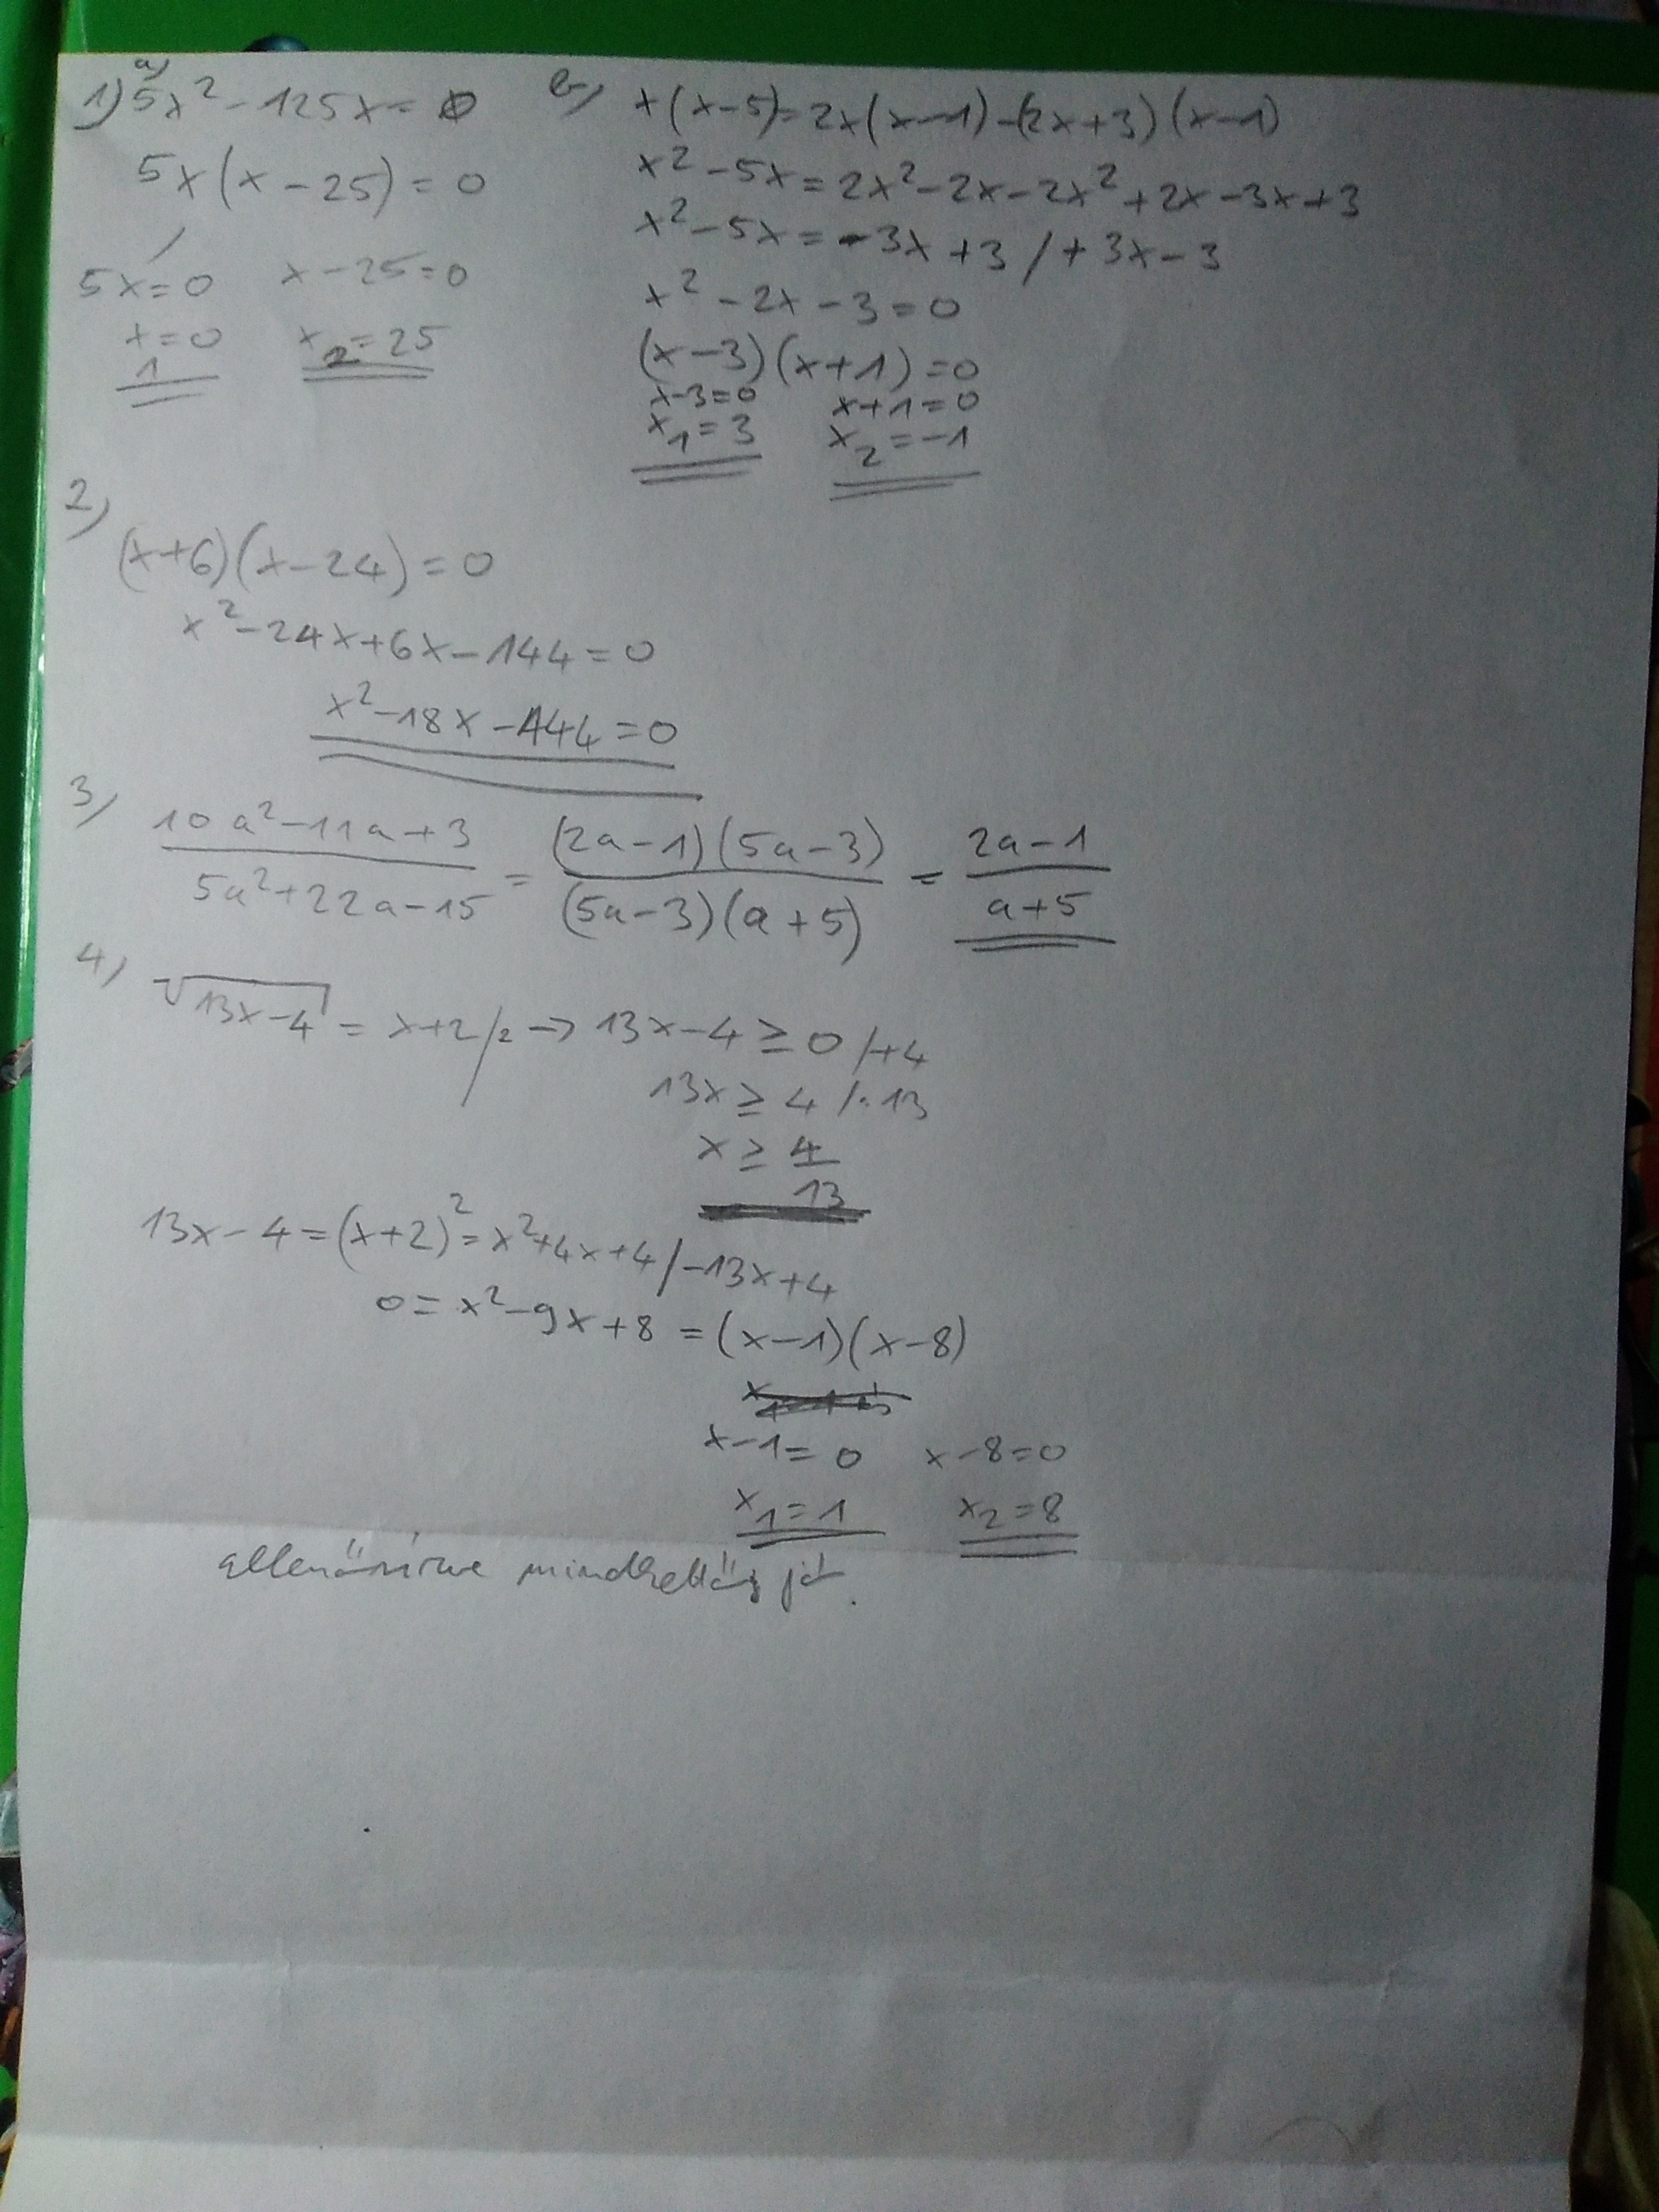 1) a) 5x² - 125x = 0
5x(x - 25) = 0
5x = 0 x - 25 = 0
x₁ = 0 x₂ = 25
b) x(x-5) = 2x(x-1) - (2x+3)(x-1)
x² - 5x = 2x² - 2x - 2x² + 2x - 3x + 3
x² - 5x = -3x + 3 / + 3x - 3
x² - 2x - 3 = 0
(x-3)(x+1) = 0
x-3=0 x+1=0
x₁ = 3 x₂ = -1
2)
(x+6)(x-24) = 0
x² - 24x + 6x - 144 = 0
x² - 18x - 144 = 0
3) (10a² - 11a + 3)/(5a² + 22a - 15) = ((2a-1)(5a-3))/((5a-3)(a+5)) = (2a-1)/(a+5)
4) √(13x-4) = x+2 /² → 13x - 4 ≥ 0 /+4
13x ≥ 4 /:13
x ≥ 4/13
13x - 4 = (x+2)² = x² + 4x + 4 / -13x + 4
0 = x² - 9x + 8 = (x-1)(x-8)
x-1 = 0 x-8 = 0
x₁ = 1 x₂ = 8
ellenőrizve mindkettő jó.